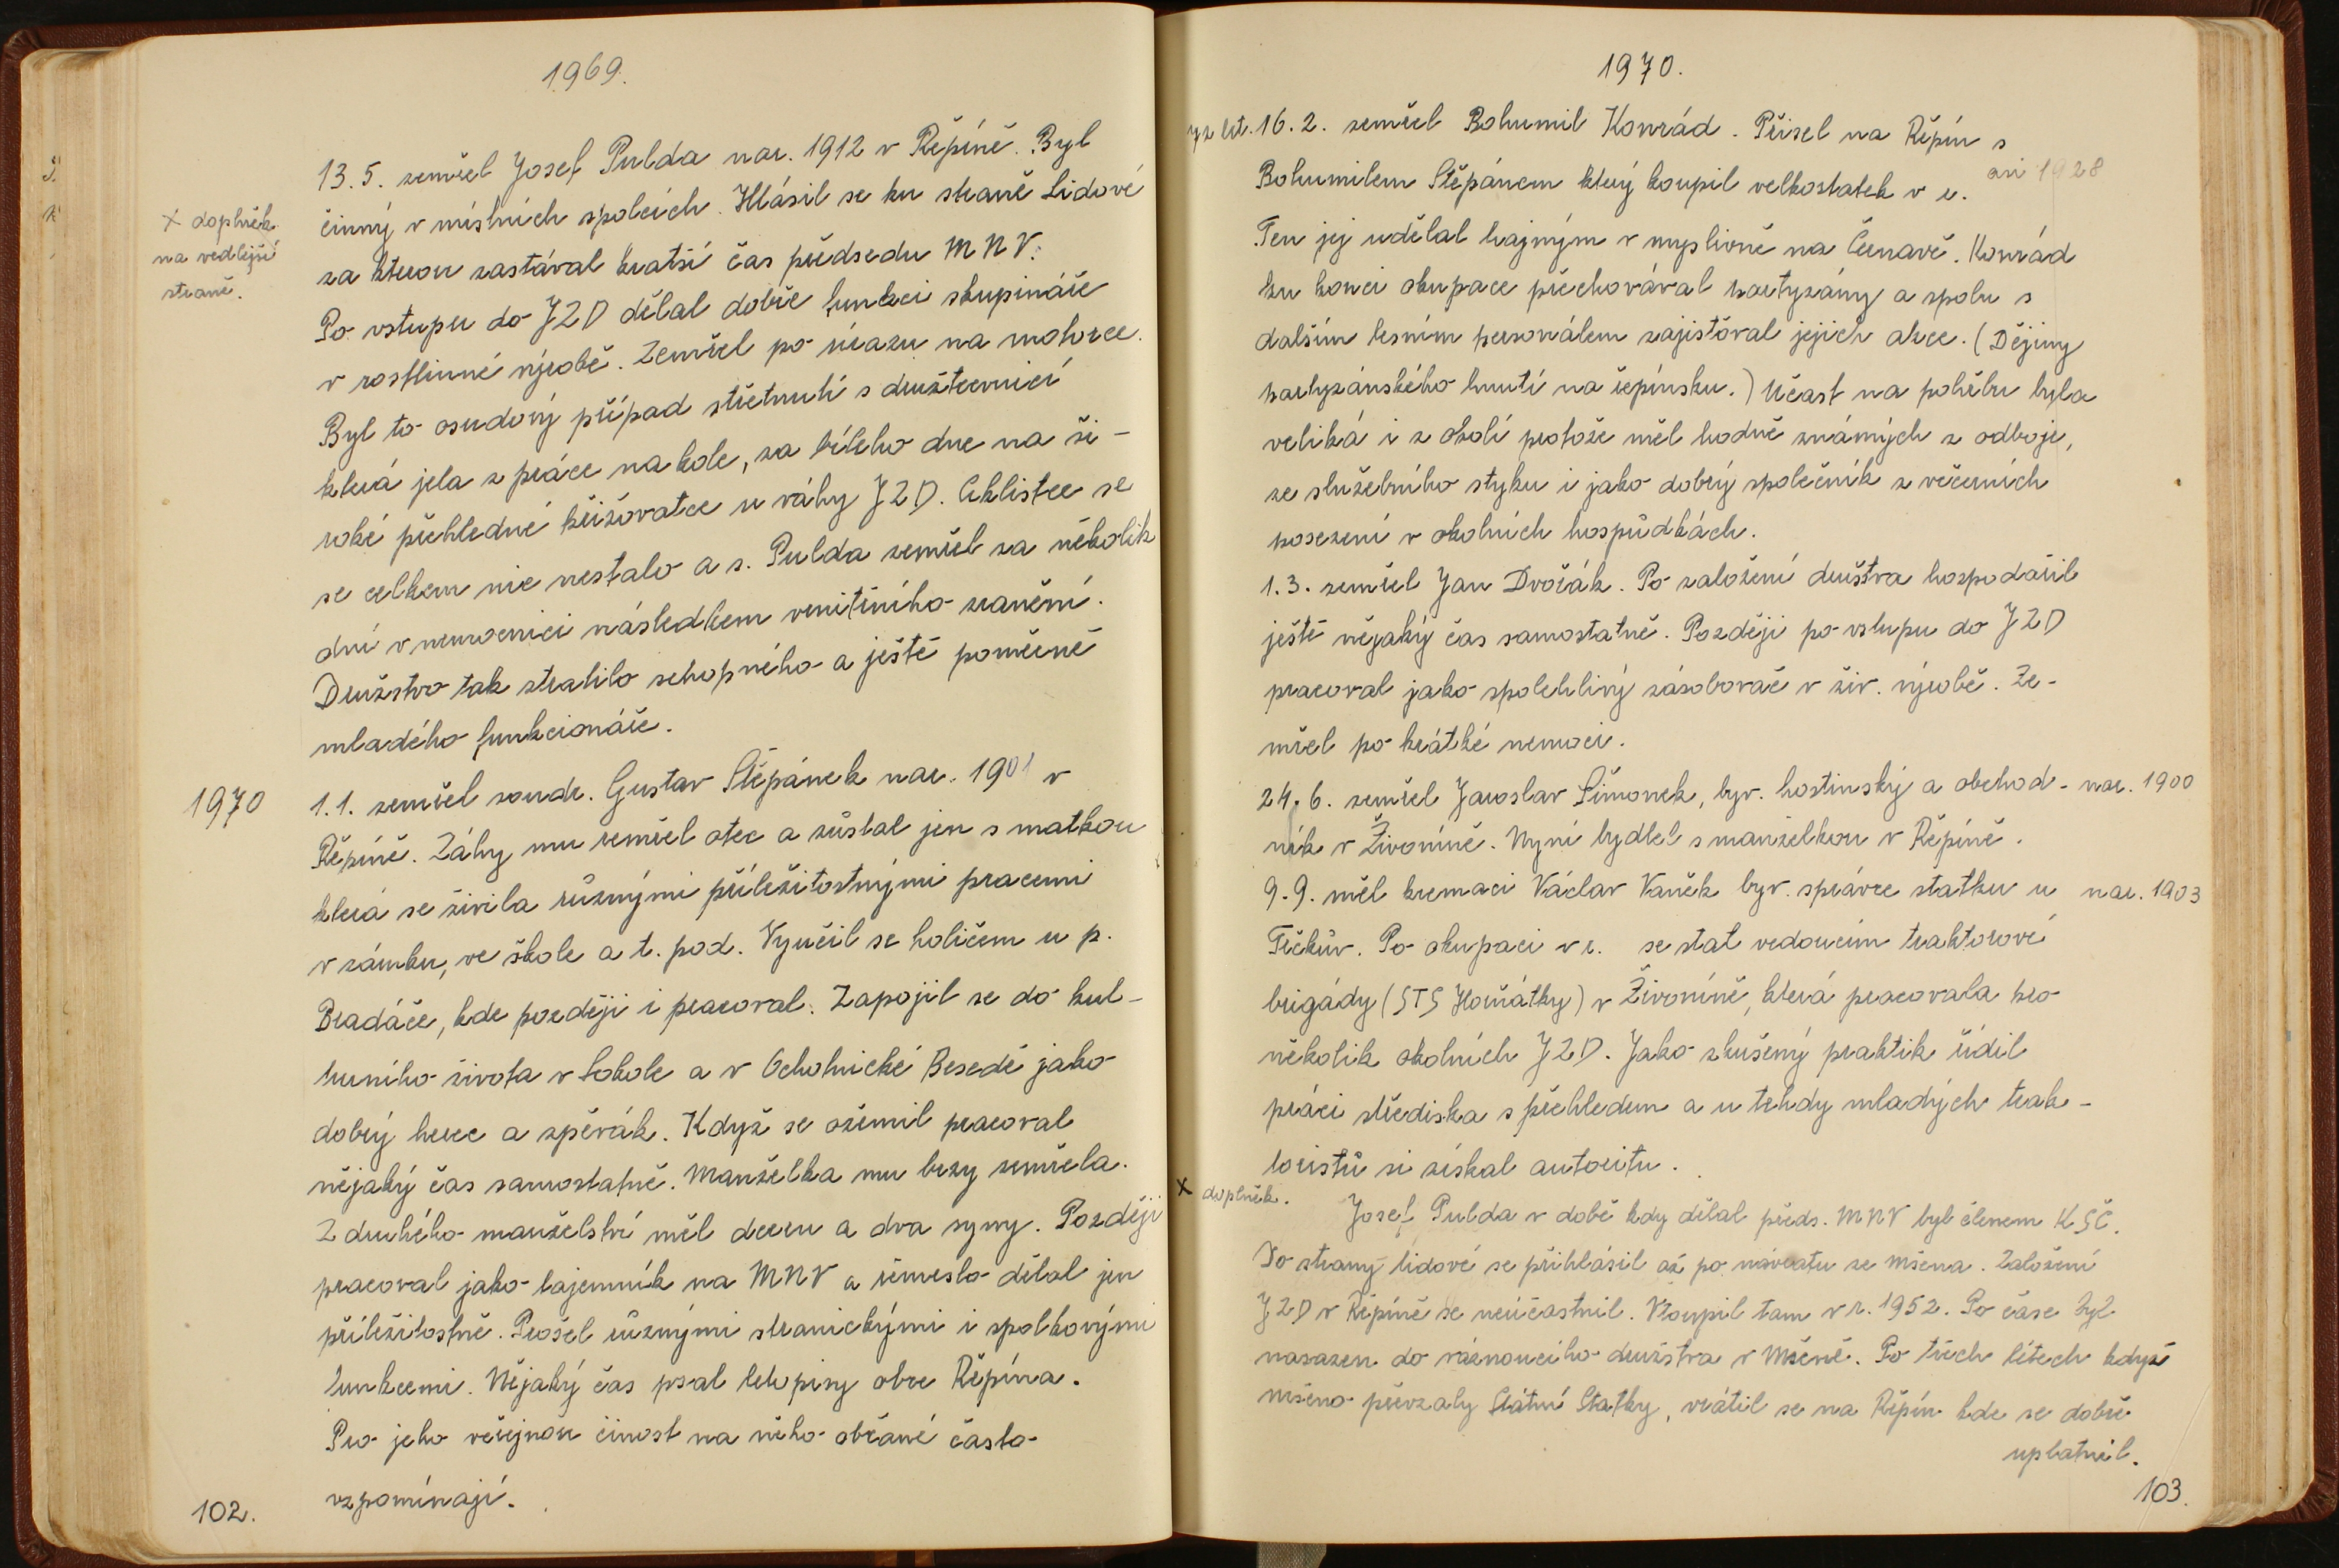 1969.
13.5. zemřel Josef Pulda nar. 1912 v Řepíně. Byl
činný v místních spolcích. Hlásil se ku straně Lidové
x doplněk
na vedlejší
straně.
za kterou zastával kratší čas předsedu MNV.
Po vstupu do JZD dělal dobře funkci skupináře
v rostlinné výrobě. Zemřel po úrazu na motorce.
Byl to osudový případ střetnutí s družstevnicí
která jela z práce na kole, za bílého dne na ši-
roké přehledné křižovatce u váhy JZD. Ciklistce se
se celkem nic nestalo a s. Pulda zemřel za několik
dní v nemocnici následkem vnitřního zranění.
Družstvo tak ztratilo schopného a ještě poměrně
mladého funkcionáře.
1970
1.1. zemřel soudr. Gustav Štěpánek nar. 1901 v
Řepíně. Záhy mu zemřel otec a zůstal jen s matkou
která se živila různými příležitostnými pracemi
v zámku, ve škole a t. pod. Vyučil se holičem u p.
Bradáče, kde později i pracoval. Zapojil se do kul-
turního života v Sokole a v Ochotnické Besedě jako
dobrý herec a zpěvák. Když se oženil pracoval
nějaký čas samostatně. Manželka mu brzy zemřela.
Z druhého manželství měl dceru a dva syny. Později
pracoval jako tajemník na MNV a řemeslo dělal jen
příležitostně. Prošel různými stranickými i spolkovými
funkcemi. Nějaký čas psal letopisy obce Řepína.
Pro jeho veřejnou činost na něho občané často
vzpomínají.
102.
1970.
72 let. 16.2. zemřel Bohumil Konrád. Přišel na Řepín s
Bohumilem Štěpánem který koupil velkostatek v r. asi 1928
Ten jej udělal hajným v myslivně na Černavě. Konrád
ku konci okupace přechovával partyzány a spolu s
dalším lesním personálem zajistňoval jejich akce. (Dějiny
partyzánského hnutí na řepínsku.) Účast na pohřbu byla
veliká i z okolí protože měl hodně známých z odboje,
ze služebního styku i jako dobrý společník z večerních
posezení v okolních hospůdkách.
1.3. zemřel Jan Dvořák. Po založení družstva hospodařil
ještě nějaký čas samostatně. Později po vstupu do JZD
pracoval jako spolehlivý zásobovač v živ. výrobě. Ze-
mřel po krátké nemoci.
24.6. zemřel Jaroslav Šimonek, býv. hostinský a obchod- nar. 1900
ník v Živoníně. Nyní bydlel s manželkou v Řepíně.
9.9. měl kremaci Václav Vaněk býv. správce statku u nar. 1903
Frčkův. Po okupaci v r. se stal vedoucím traktorové
brigády (STS Hořátky) v Živoníně, která pracovala pro
několik okolních JZD. Jako zkušený praktik řídil
práci střediska s přehledem a u tehdy mladých trak-
toristů si získal autoritu.
x doplněk. Josef Pulda v době kdy dělal předs. MNV byl členem KSČ.
Do strany lidové se přihlásil až po návratu ze Mšena. Založení
JZD v Řepíně se neúčastnil. Vstoupil tam v r. 1952. Po čase byl
nasazen do váznoucího družstva v Mšeně. Po třech létech když
Mšeno převzaly Státní Statky, vrátil se na Řepín kde se dobře
uplatnil.
103.